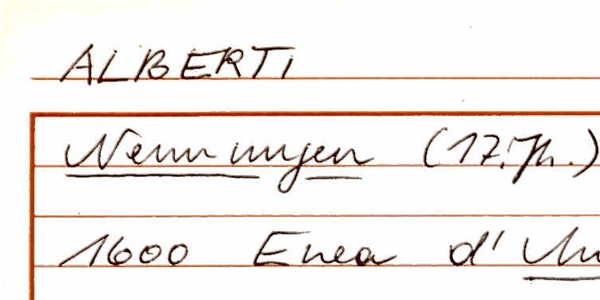 ALBERTI
Nennungen (17. Jh.)
1600 Enea d'